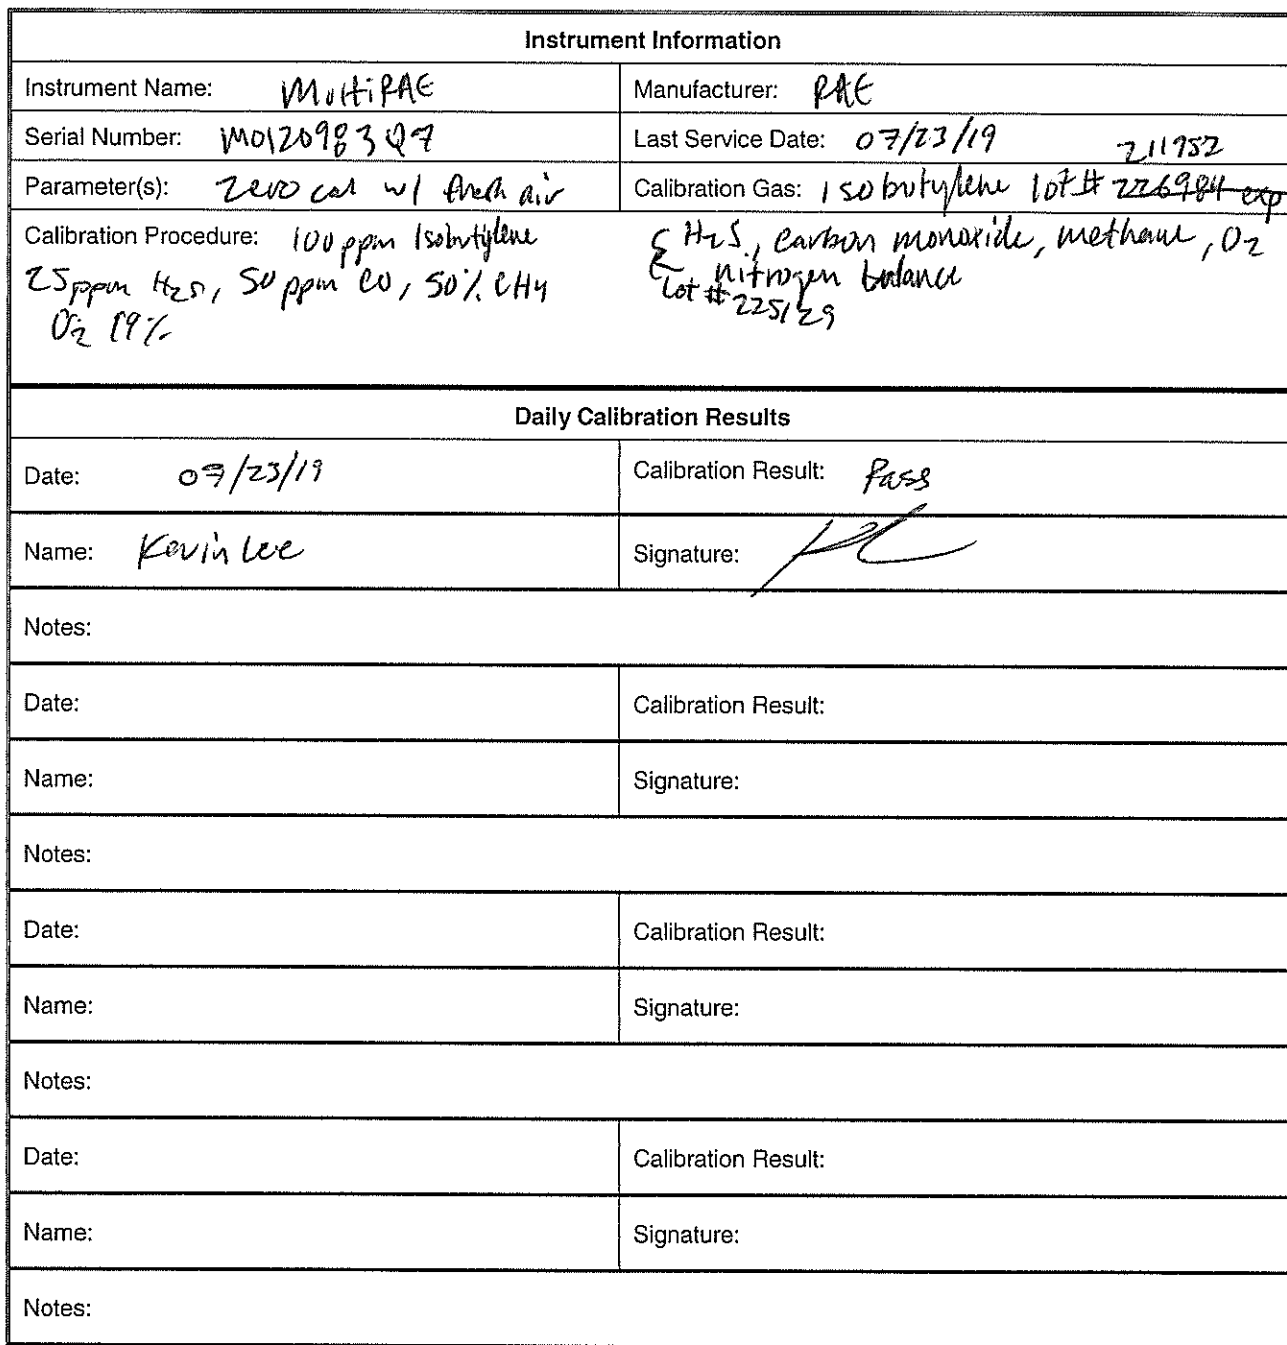 Instrument Information
Instrument Name: MultiRAE
Manufacturer: RAE
Serial Number: M0120983Q7
Last Service Date: 07/23/19
211952
Parameter(s): Zero cal w/ fresh air
Calibration Gas: Isobutylene lot # 226984 exp
Calibration Procedure: 100 ppm Isobutylene
25ppm H2S, 50 ppm CO, 50% CH4
O2 19%
H2S, carbon monoxide, methane, O2
nitrogen balance
Lot # 225129
Daily Calibration Results
Date: 07/23/19
Calibration Result: Pass
Name: Kevin Lee
Signature:
Notes:
Date:
Calibration Result:
Name:
Signature:
Notes:
Date:
Calibration Result:
Name:
Signature:
Notes:
Date:
Calibration Result:
Name:
Signature:
Notes: